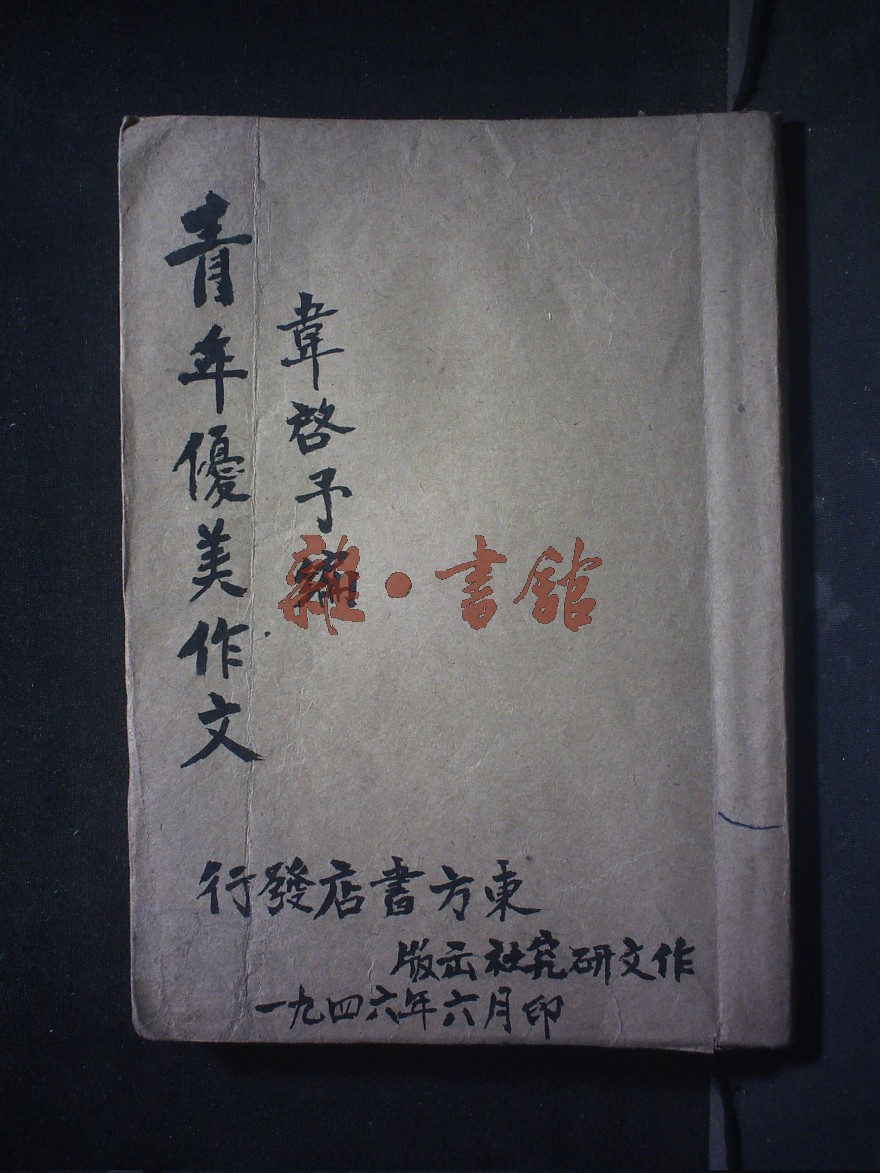 青年優美作文
韋啓予編
雜·書館
東方書店發行
作文研究社出版
一九四六年六月印